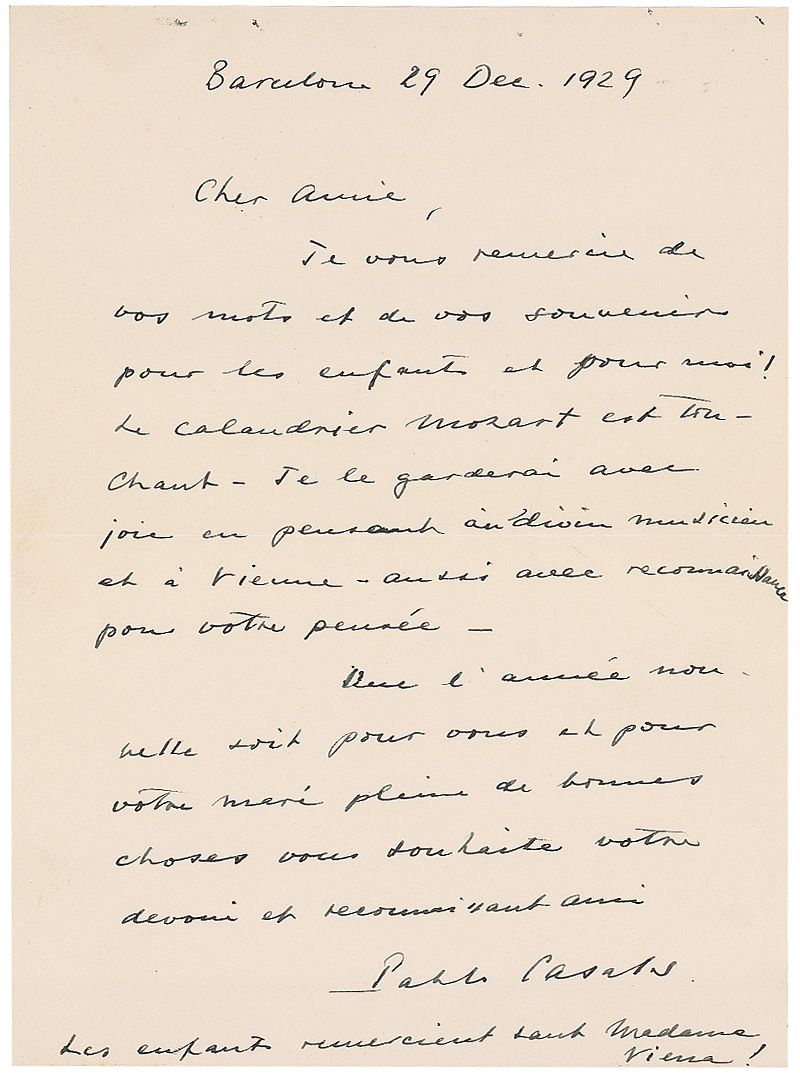 Barcelona 29 Dec. 1929
Cher Amie,
Je vous remercie de
vos mots et de vos souvenirs
pour les enfants et pour moi!
Le calandrier Mozart est tou-
chant - Je le garderai avec
joie en pensant au divin musicien
et à Vienne - aussi avec reconnaissance
pour votre pensée -
Que l'année nou-
velle soit pour vous et pour
votre mari pleine de bonnes
choses vous souhaite votre
devoué et reconnaissant ami
Pablo Casals
Les enfants remercient tant Madame
Viena!